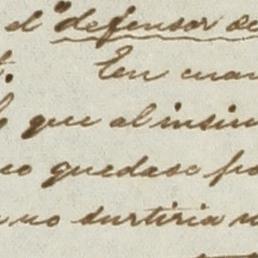 el "defensor de
t. En cuan
que al insin
co quedase po
no surtiria